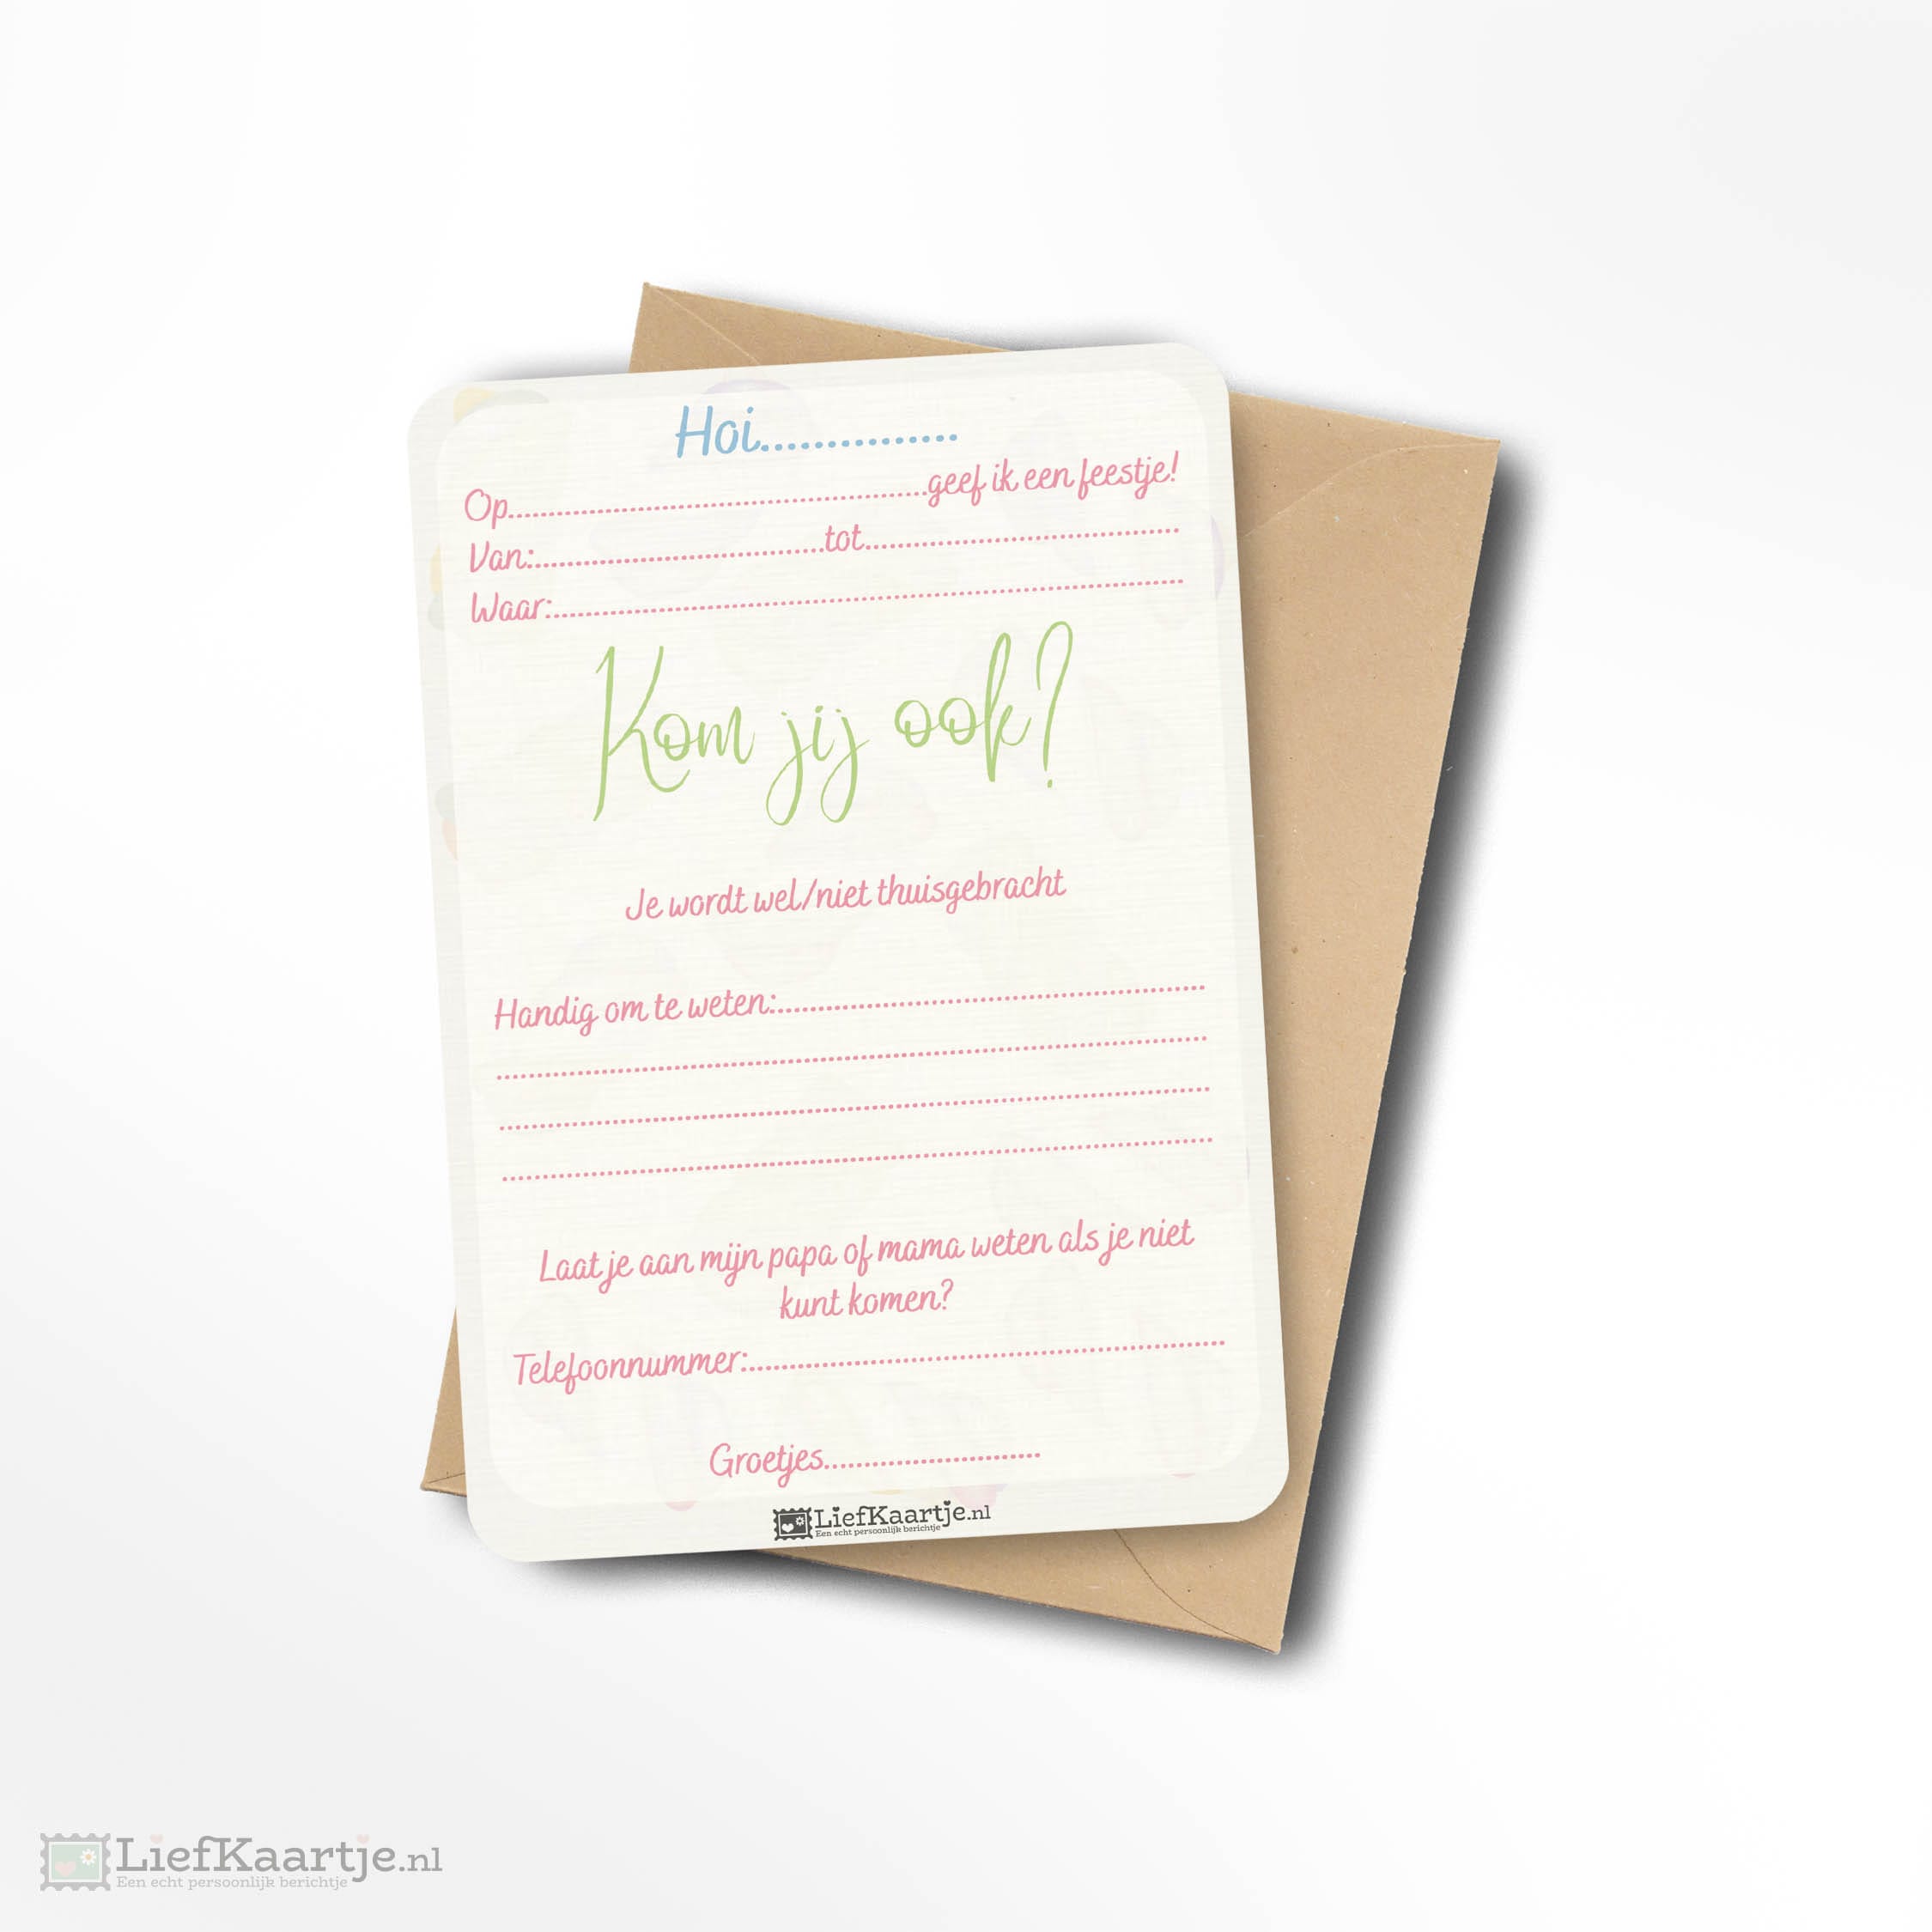 Hoi...............
Op..................................................geef ik een feestje!
Van:...................................tot......................................
Waar:............................................................................
Kom jij ook?
Je wordt wel/niet thuisgebracht
Handig om te weten:....................................................
......................................................................................
......................................................................................
......................................................................................
Laat je aan mijn papa of mama weten als je niet
kunt komen?
Telefoonnummer:..........................................................
Groetjes..........................
LiefKaartje.nl
Een echt persoonlijk berichtje
LiefKaartje.nl
Een echt persoonlijk berichtje